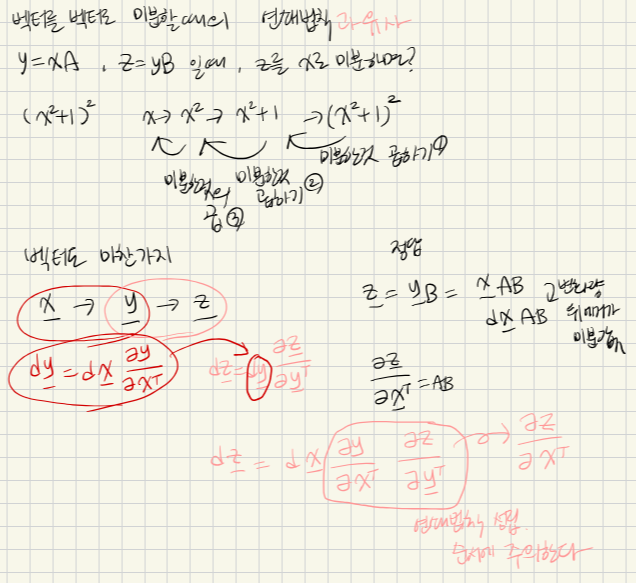 벡터를 벡터로 미분할때의 연쇄법칙과 유사
y=xA , z=yB 일때, z를 x로 미분하면?
(x²+1)² x→x²→x²+1 →(x²+1)²
미분한것 곱하기①
미분한것 곱하기②
미분한것의 곱③
벡터도 마찬가지
x → y → z
dy = dx ∂y/∂xᵀ
dz = dy ∂z/∂yᵀ
정답
z = yB = xAB
dx AB
∂z/∂xᵀ = AB
dz = dx ∂y/∂xᵀ ∂z/∂yᵀ → ∂z/∂xᵀ
연쇄법칙 성립.
순서에 주의한다